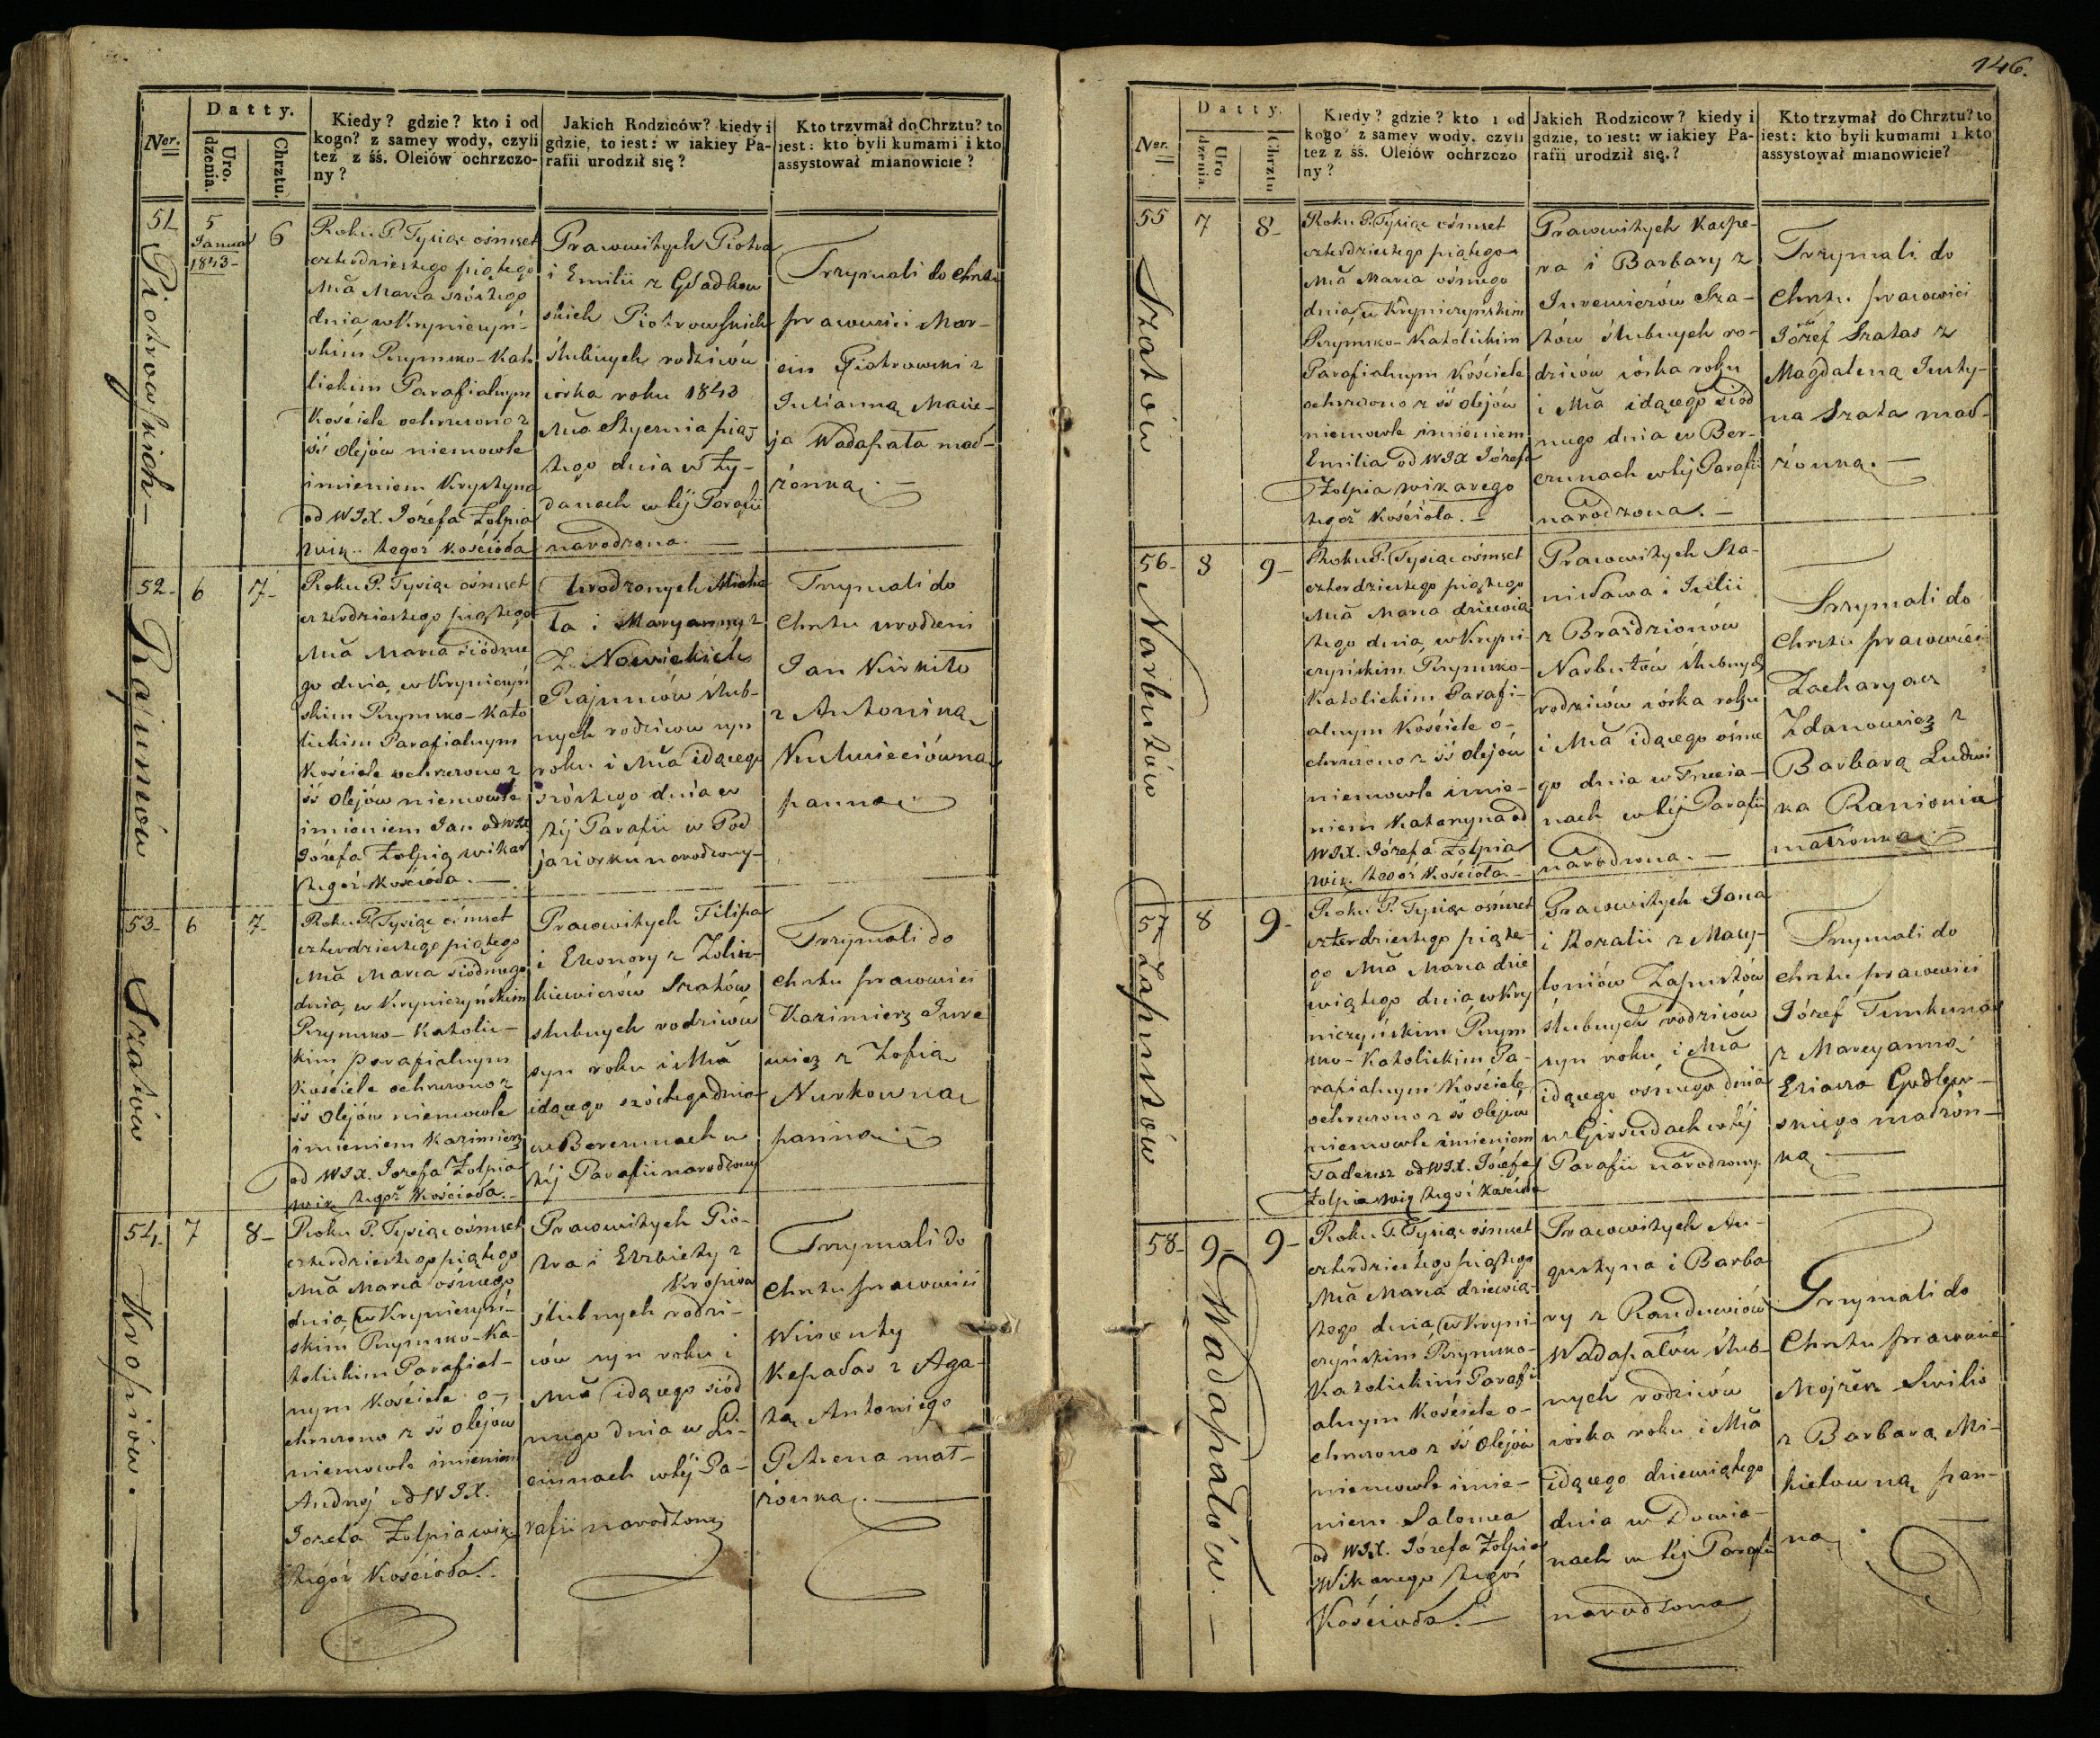 Datty.
Ner.
Uro.
dzenia.
Chrztu.
Kiedy? gdzie? kto i od
kogo? z samey wody, czyli
też z śś. Oleiów ochrzczo-
ny?
Jakich Rodziców? kiedy i
gdzie, to iest: w iakiey Pa-
rafii urodził się?
Kto trzymał do Chrztu? to
iest: kto byli kumami i kto
assystował mianowicie?
51
Piotrowskich
5
Januar
1843
6
Roku P. Tysiąc ośmset
czterdziestego piątego
Mca Marca szóstego
dnia, w Kryniczyń-
skim Rzymsko-Kato
lickim Parafialnym
Kościele ochrzczono z
śś Olejów niemowle
imieniem Krystyna
od WJX. Józefa Żołpia
wik. tegoż Kościoła
Pracowitych Piotra
i Emilii z Gładkow
skich Piotrowskich
ślubnych rodziców
córka roku 1843
Mca Stycznia pią
tego dnia w Ży-
danach w téj Parafii
narodzona.
Trzymali do Chrztu
pracowici Mar-
cin Piotrowski z
Julianną Macie-
ja Wadapała mał-
żonką.
52
Rajuniów
6
7
Roku P. Tysiąc ośmset
czterdziestego piątego
Mca Marca siódme
go dnia, w Kryniczyń
skim Rzymsko-Kato
lickim Parafialnym
Kościele ochrzczono z
śś Olejów niemowle
imieniem Jan od WJX
Józefa Żołpia wikar
tegoż Kościoła.
Urodzonych Micha
ła i Maryanny z
Z. Nowickich
Rajuniów ślub-
nych rodziców syn
roku i Mca idącego
szóstego dnia w
téj Parafii w Pod
jaziorku narodzony
Trzymali do
Chrztu urodzeni
Jan Kirkiłło
z Antoniną
panną
53
Szatów
6
7
Roku P. Tysiąc ośmset
czterdziestego piątego
Mca Marca siódmego
dnia, w Kryniczyńskim
Rzymsko-Katolic-
kim parafialnym
Kościele ochrzczono z
śś Olejów niemowle
imieniem Kazimierz
od WJX. Jozefa Żołpia
wik tegoż Kościoła.
Pracowitych Filipa
i Eleonory z
Szatów
ślubnych rodziców
syn roku i Mca
idącego szóstego dnia
w Berczunach w
téj Parafii narodzony
Trzymali do
chrztu pracowici
Kazimierz Jure
wicz z Zofią
Nurkowną
panną
54
Kropiów.
7
8
Roku P. Tysiąc ośmset
czterdziestego piątego
Mca Marca ósmego
dnia, w Kryniczyń-
skim Rzymsko-Ka-
tolickim Parafial-
nym Kościele o-
chrzczono z śś Olejów
niemowle imieniem
Andrzéj od WJX.
Jozefa Żołpia wik.
tegoż Kościoła.
Pracowitych Pio-
tra i Elzbiety z
Kropiów
ślubnych rodzi-
ców syn roku i
Mca idącego siód
mego dnia w
w téj Pa-
rafii narodzony
Trzymali do
Chrztu pracowici
Wincenty
Kepałas z Aga-
tą Antoniego
Petrena mał-
żonką.
146.
Datty.
Ner.
Uro
dzenia.
Chrztu
Kiedy? gdzie? kto i od
kogo? z samey wody, czyli
też z śś. Oleiów ochrzczo
ny?
Jakich Rodzicow? kiedy i
gdzie, to iest: w iakiey Pa-
rafii urodził się.?
Kto trzymał do Chrztu? to
iest: kto byli kumami i kto
assystował mianowicie?
55
Szatów
7
8
Roku P. Tysiąc ośmset
czterdziestego piątego
Mca Marca ósmego
dnia, w Kryniczyńskim
Rzymsko-Katolickim
Parafialnym Kościele
ochrzczono z śś olejów
niemowle imieniem
Emilia od WJX Józefa
Żołpia wikarego
tegoż Kościoła.
Pracowitych Kacpe-
ra i Barbary z
Jurewiczów Sza-
tów ślubnych ro-
dziców córka roku
i Mca idącego siód
mego dnia w Ber-
czunach w téj Parafii
narodzona.
Trzymali do
Chrztu pracowici
Józef Szatas z
Magdaleną Justy-
na Szata mał-
żonką.
56
Narbutów
8
9
Roku P. Tysiąc ośmset
czterdziestego piątego
Mca Marca dziewią
tego dnia, w Kryni
czyńskim Rzymsko-
Katolickim Parafi-
alnym Kościele o-
chrzczono z śś Olejów
niemowle imie-
niem Katarzyna od
WJX. Józefa Żołpia
wik. tegoż Kościoła.
Pracowitych Sta-
nisława i Julii
z Braździonów
Narbutów ślubnych
rodziców córka roku
i Mca idącego ósme
go dnia w
nach w téj Parafii
narodzona.
Trzymali do
Chrztu pracowici
Zacharyasz
Zdanowicz z
Barbarą Ludwi
ka Ranionia
małżonką
57
Łapustów
8
9
Roku P. Tysiąc ośmset
czterdziestego piąte-
go Mca Marca dzie
wiątego dnia w Kry
niczyńskim Rzym
sko-Katolickim Pa-
rafialnym Kościele
ochrzczono z śś Olejów
niemowle imieniem
Tadeusz od WJX. Józefa
Żołpia wik tegoż Kościoła
Pracowitych Jana
i Rozalii z Macy-
loniów Łapustów
ślubnych rodziców
syn roku i Mca
idącego ósmego dnia
w Girsudach w téj
Parafii narodzony.
Trzymali do
chrztu pracowici
Józef Timkunas
z Maryanną
Eliasza Gudlew-
skiego małżon-
ką
58
Wadapałów.
9
9
Roku P. Tysiąc ośmset
czterdziestego piątego
Mca Marca dziewią-
tego dnia, w Kryni-
czyńskim Rzymsko-
Katolickim Parafi
alnym Kościele o-
chrzczono z śś Olejów
niemowle imie-
niem Salomea
od WJX. Józefa Żołpia
Wikarego tegoż
Kościoła.
Pracowitych Au-
gustyna i Barba
ry z Randuwiów
Wadapałów ślub-
nych rodziców
córka roku i Mca
idącego dziewiątego
dnia w Dowia-
nach w téj Parafii
narodzona
Trzymali do
Chrztu pracowici
Mojżesz Swilis
z Barbarą Mi-
kielowną pan-
ną.